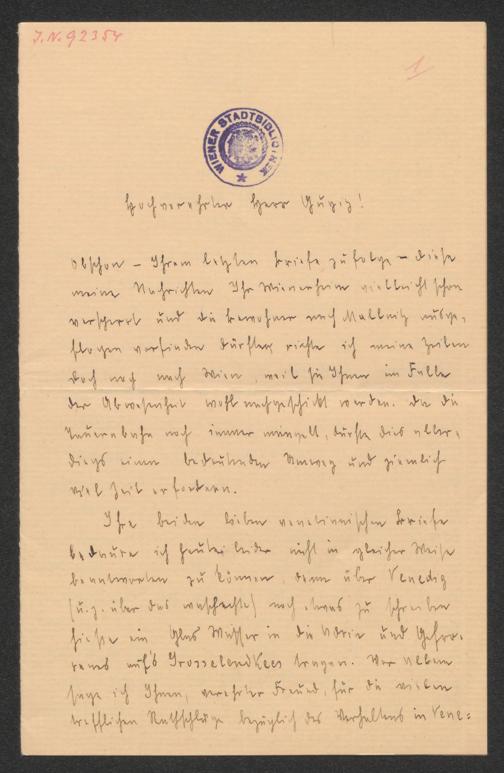 J.N. 92354
1
WIENER STADTBIBLIOTHEK
Hochverehrter Herr Gugiz!
Obschon – Ihrem letzten Briefe zufolge – diese
meine Nachrichten Ihr Wienerheim vielleicht schon
versperrt und die Bewohner nach Mallnitz ausge-
flogen vorfinden dürften, richte ich meine Zeilen
doch noch nach Wien, weil sie Ihnen im Falle
der Abwesenheit wohl nachgeschickt werden. Da die
Tauernbahn noch immer mangelt, dürfte dies aller-
dings einen bedeutenden Umweg und ziemlich
viel Zeit erfordern.
Ihre beiden lieben venetianischen Briefe
bedaure ich heute leider nicht in gleicher Weise
beantworten zu können, denn über Venedig
(u. z. über das waschechte) noch etwas zu schreiben
hieße ein Glas Wasser in die Adria und Gefro-
renes auf's Grosselendkees tragen. Vor allem
sage ich Ihnen, verehrter Freund, für die vielen
trefflichen Rathschläge bezüglich des Verhaltens in Vene-